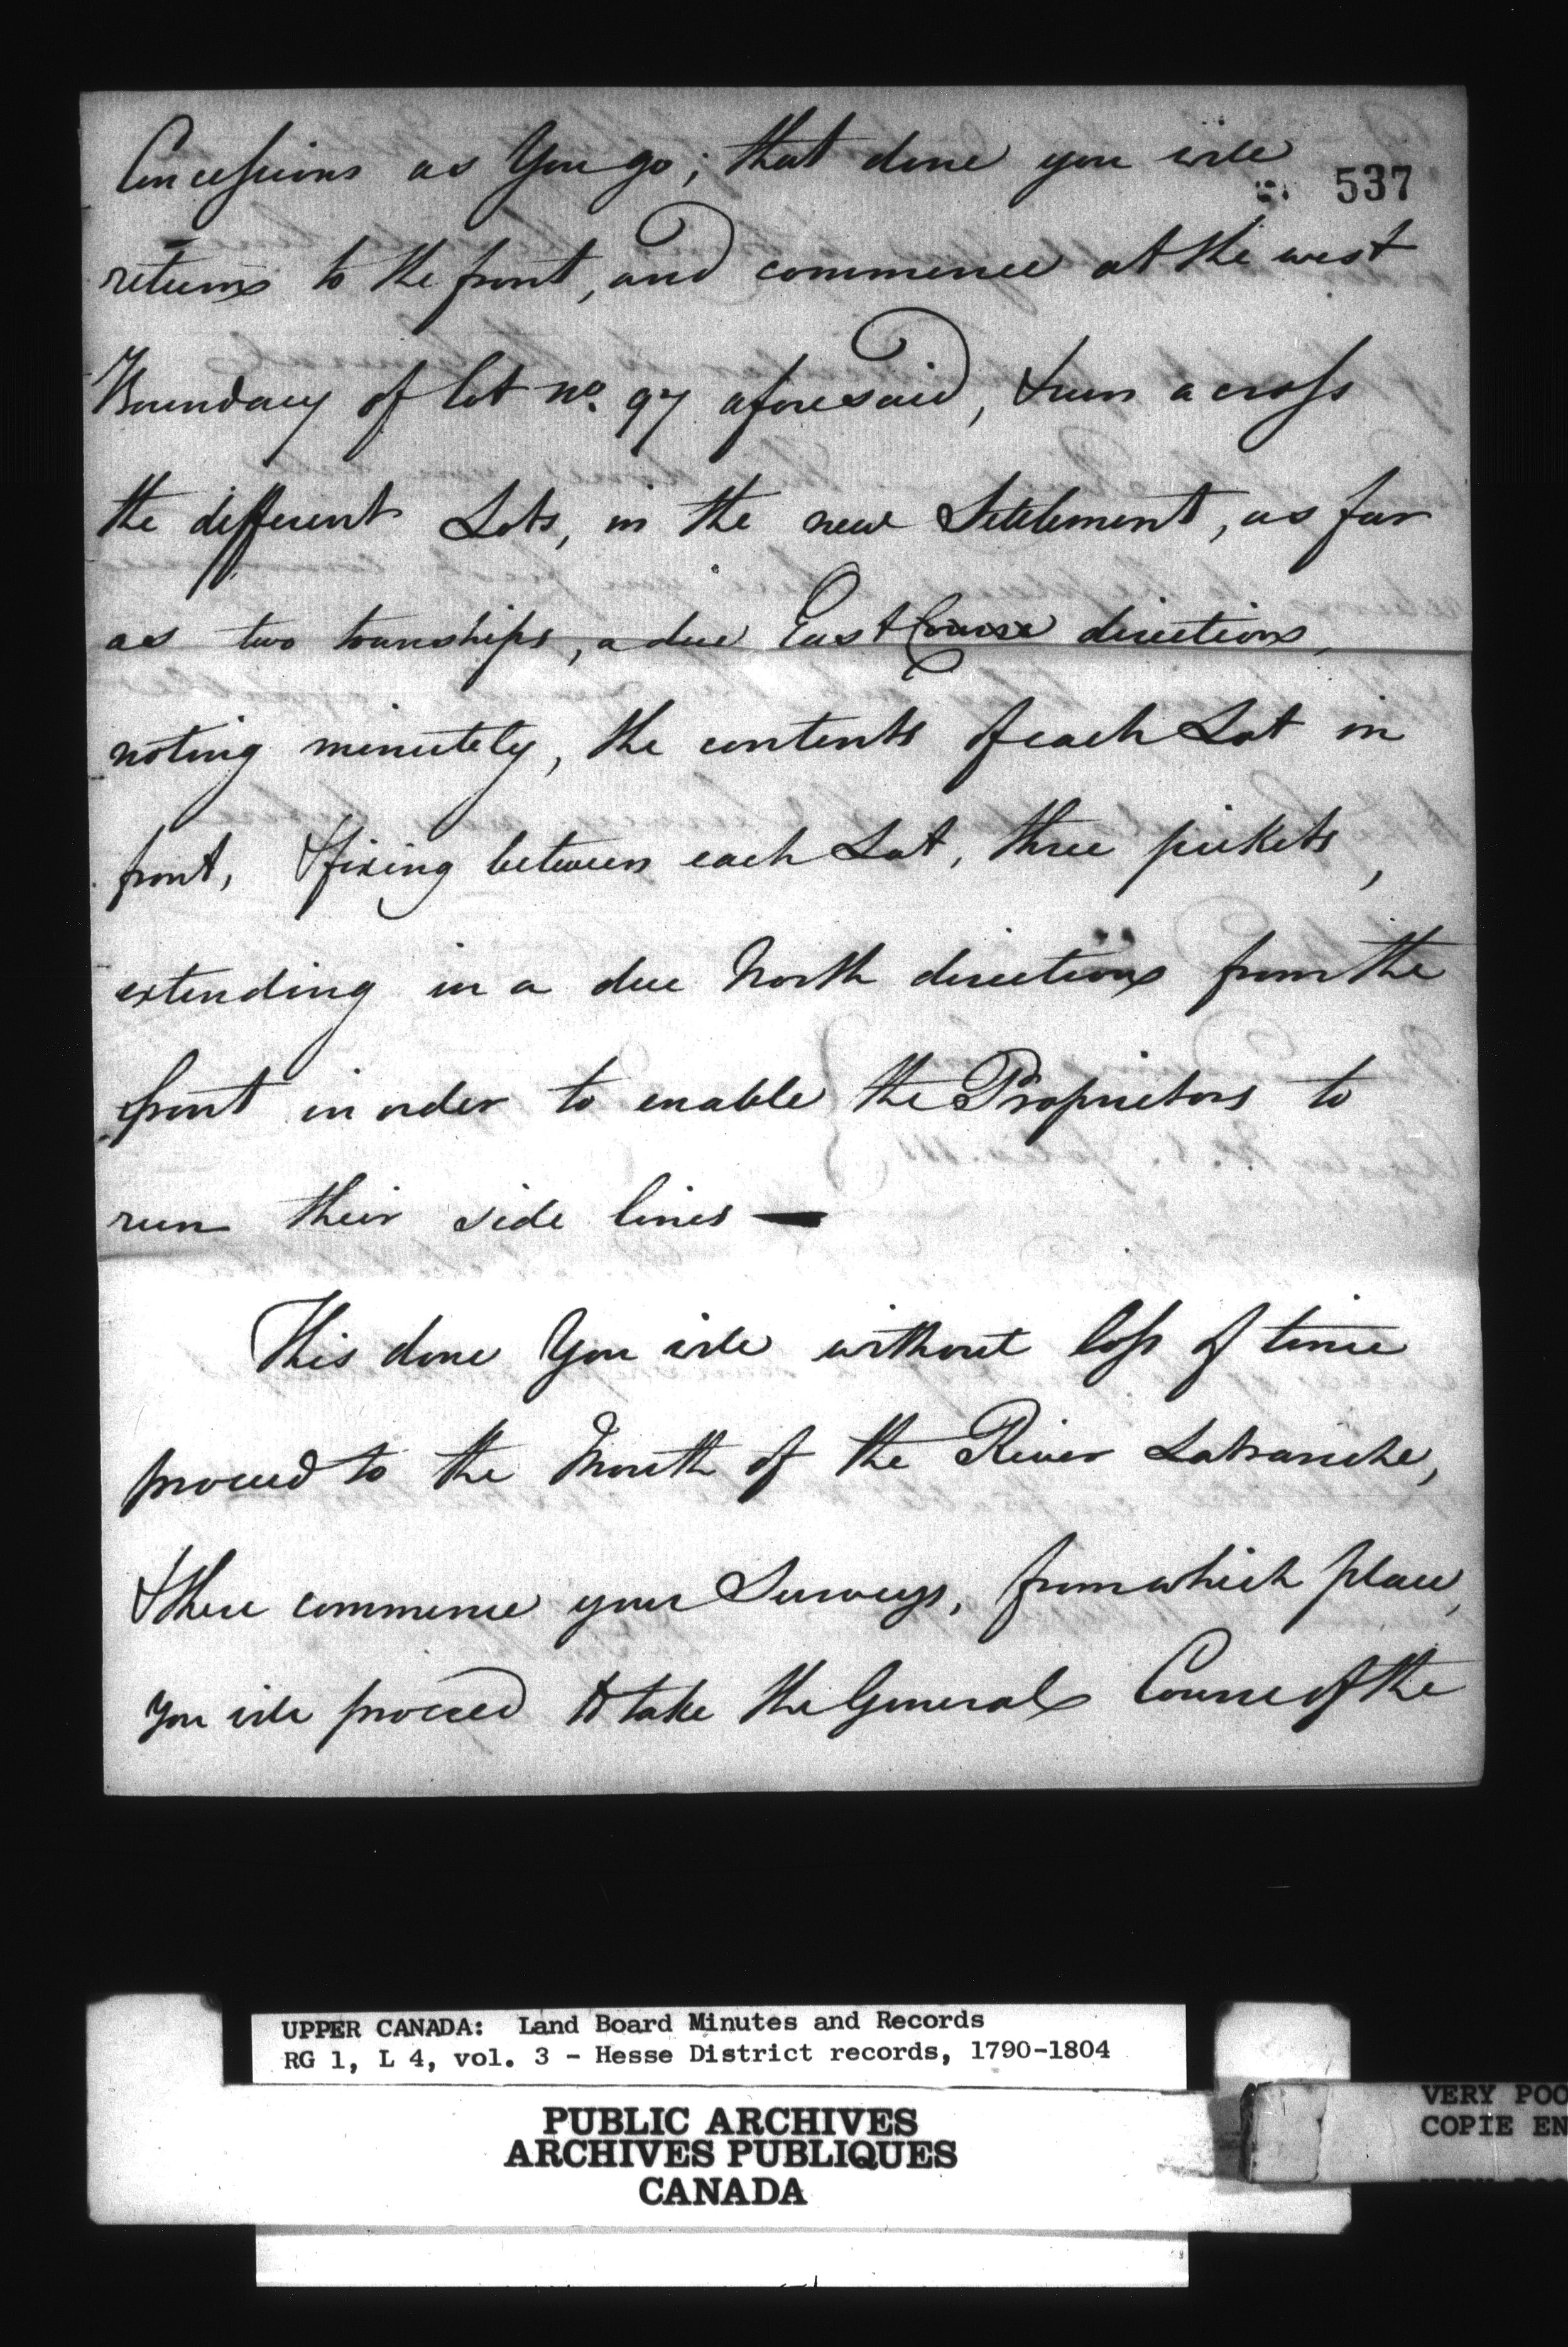 Concessions as You go; that done you will
537
return to the front, and commence at the west
Boundary of lot no. 97 aforesaid, & run across
the different Lots, in the new Settlement, as far
as two townships, a due East Course direction,
noting minutely, the contents of each Lot in
front, & fixing between each Lot, three pickets,
extending in a due North direction from the
front in order to enable the Proprietors to
run their side lines —
This done You will without loss of time
proceed to the Mouth of the River Latranche,
& there commence your Surveys, from which place,
you will proceed to take the General Course of the
UPPER CANADA: Land Board Minutes and Records
RG 1, L 4, vol. 3 - Hesse District records, 1790-1804
PUBLIC ARCHIVES
ARCHIVES PUBLIQUES
CANADA
VERY POO
COPIE EN